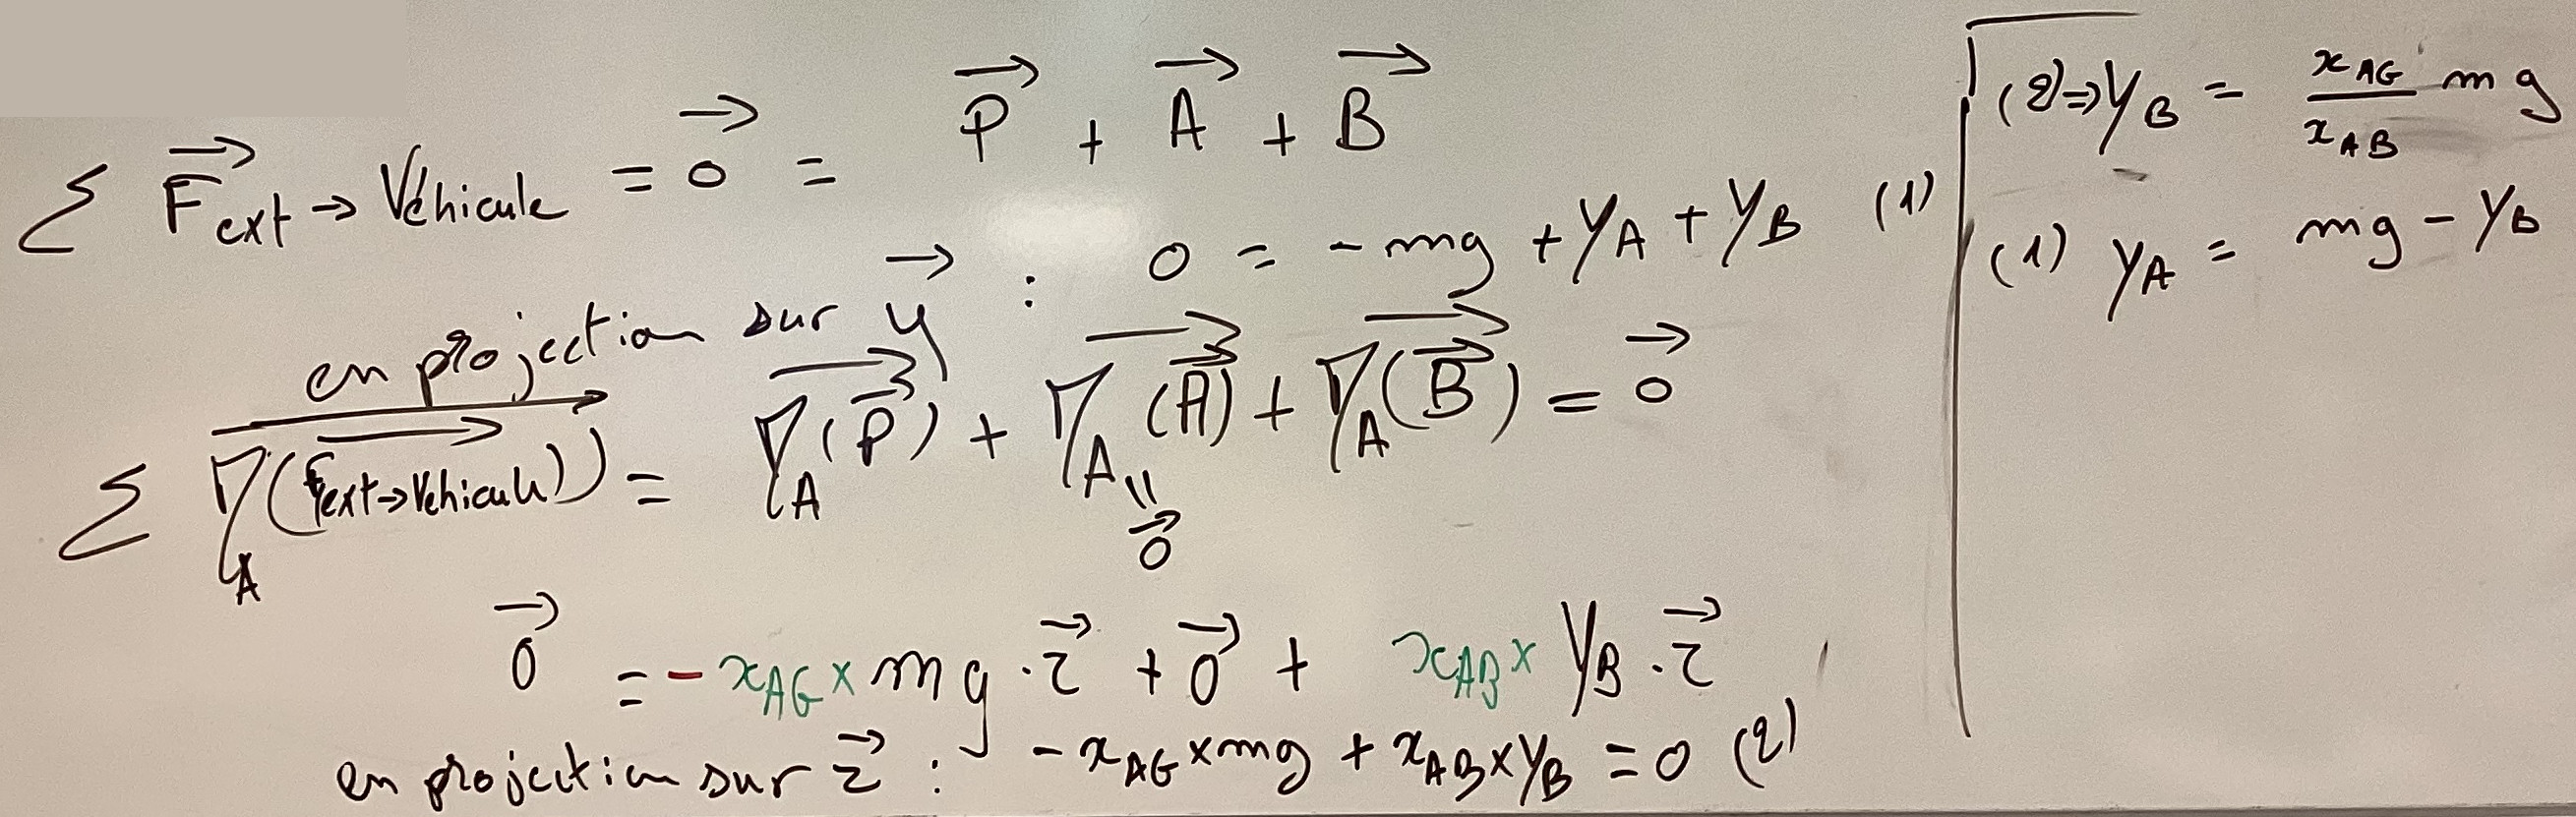 Σ F⃗ext→Véhicule = 0⃗ = P⃗ + A⃗ + B⃗
en projection sur y⃗ : 0 = -mg + YA + YB (1)
Σ M⃗A(F⃗ext→Véhicule) = M⃗A(P⃗) + M⃗A(A⃗) + M⃗A(B⃗) = 0⃗
= 0⃗
0⃗ = - xAG × mg · z⃗ + 0⃗ + xAB × YB · z⃗
en projection sur z⃗ : - xAG × mg + xAB × YB = 0 (2)
(2) ⇒ YB = xAG/xAB mg
(1) YA = mg - YB